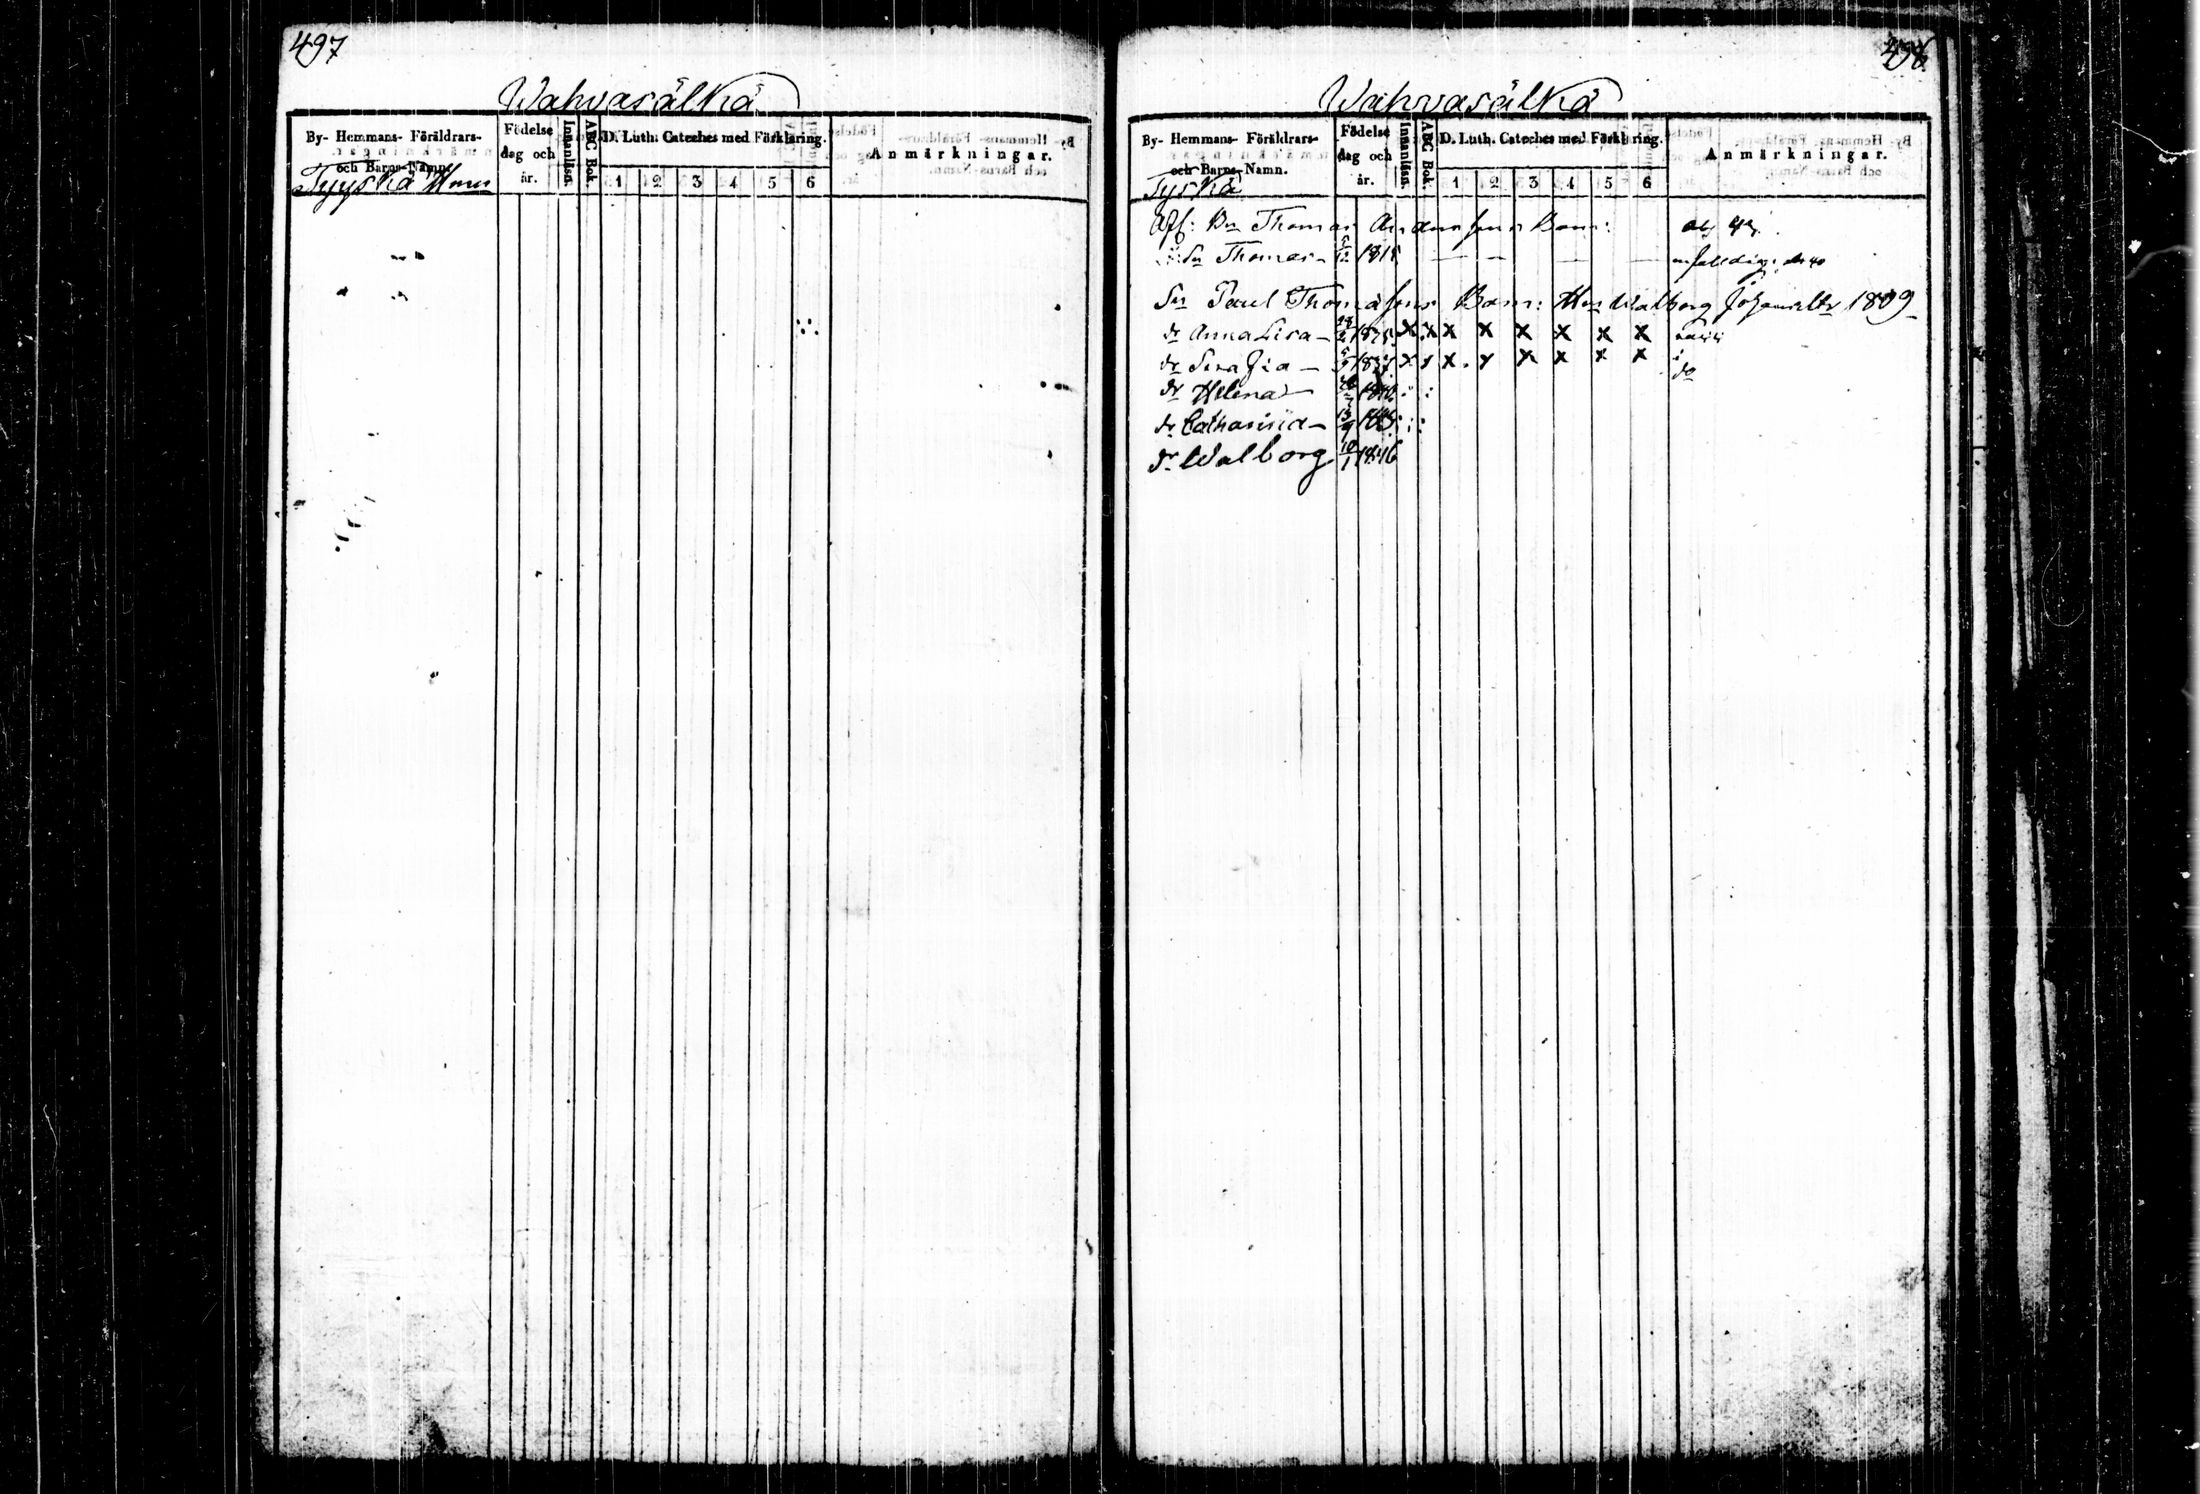 497
Wahvasälkä
By- Hemmans- Föräldrars- och Barns-Namn.
Födelse dag och år.
Innanläsn.
ABC Bok.
D. Luth. Cateches med Förklaring.
1 2 3 4 5 6
Anmärkningar.
Tyyskä
498
Wahvasälkä
By- Hemmans- Föräldrars- och Barns-Namn.
Födelse dag och år.
Innanläsn.
ABC Bok.
D. Luth. Cateches med Förklaring.
1 2 3 4 5 6
Anmärkningar.
Tyskä
Afl: Bn Thomas Anderssons Barn:
Sn Thomas 1818
Sn Paul Thomassons Barn: Hu Walborg 1809
dr Anna Lisa x x x x x x x x
dr Serafia x x x x x x x x do
dr Helena
dr Catharina 13/9
dr Walborg 10/1 1846